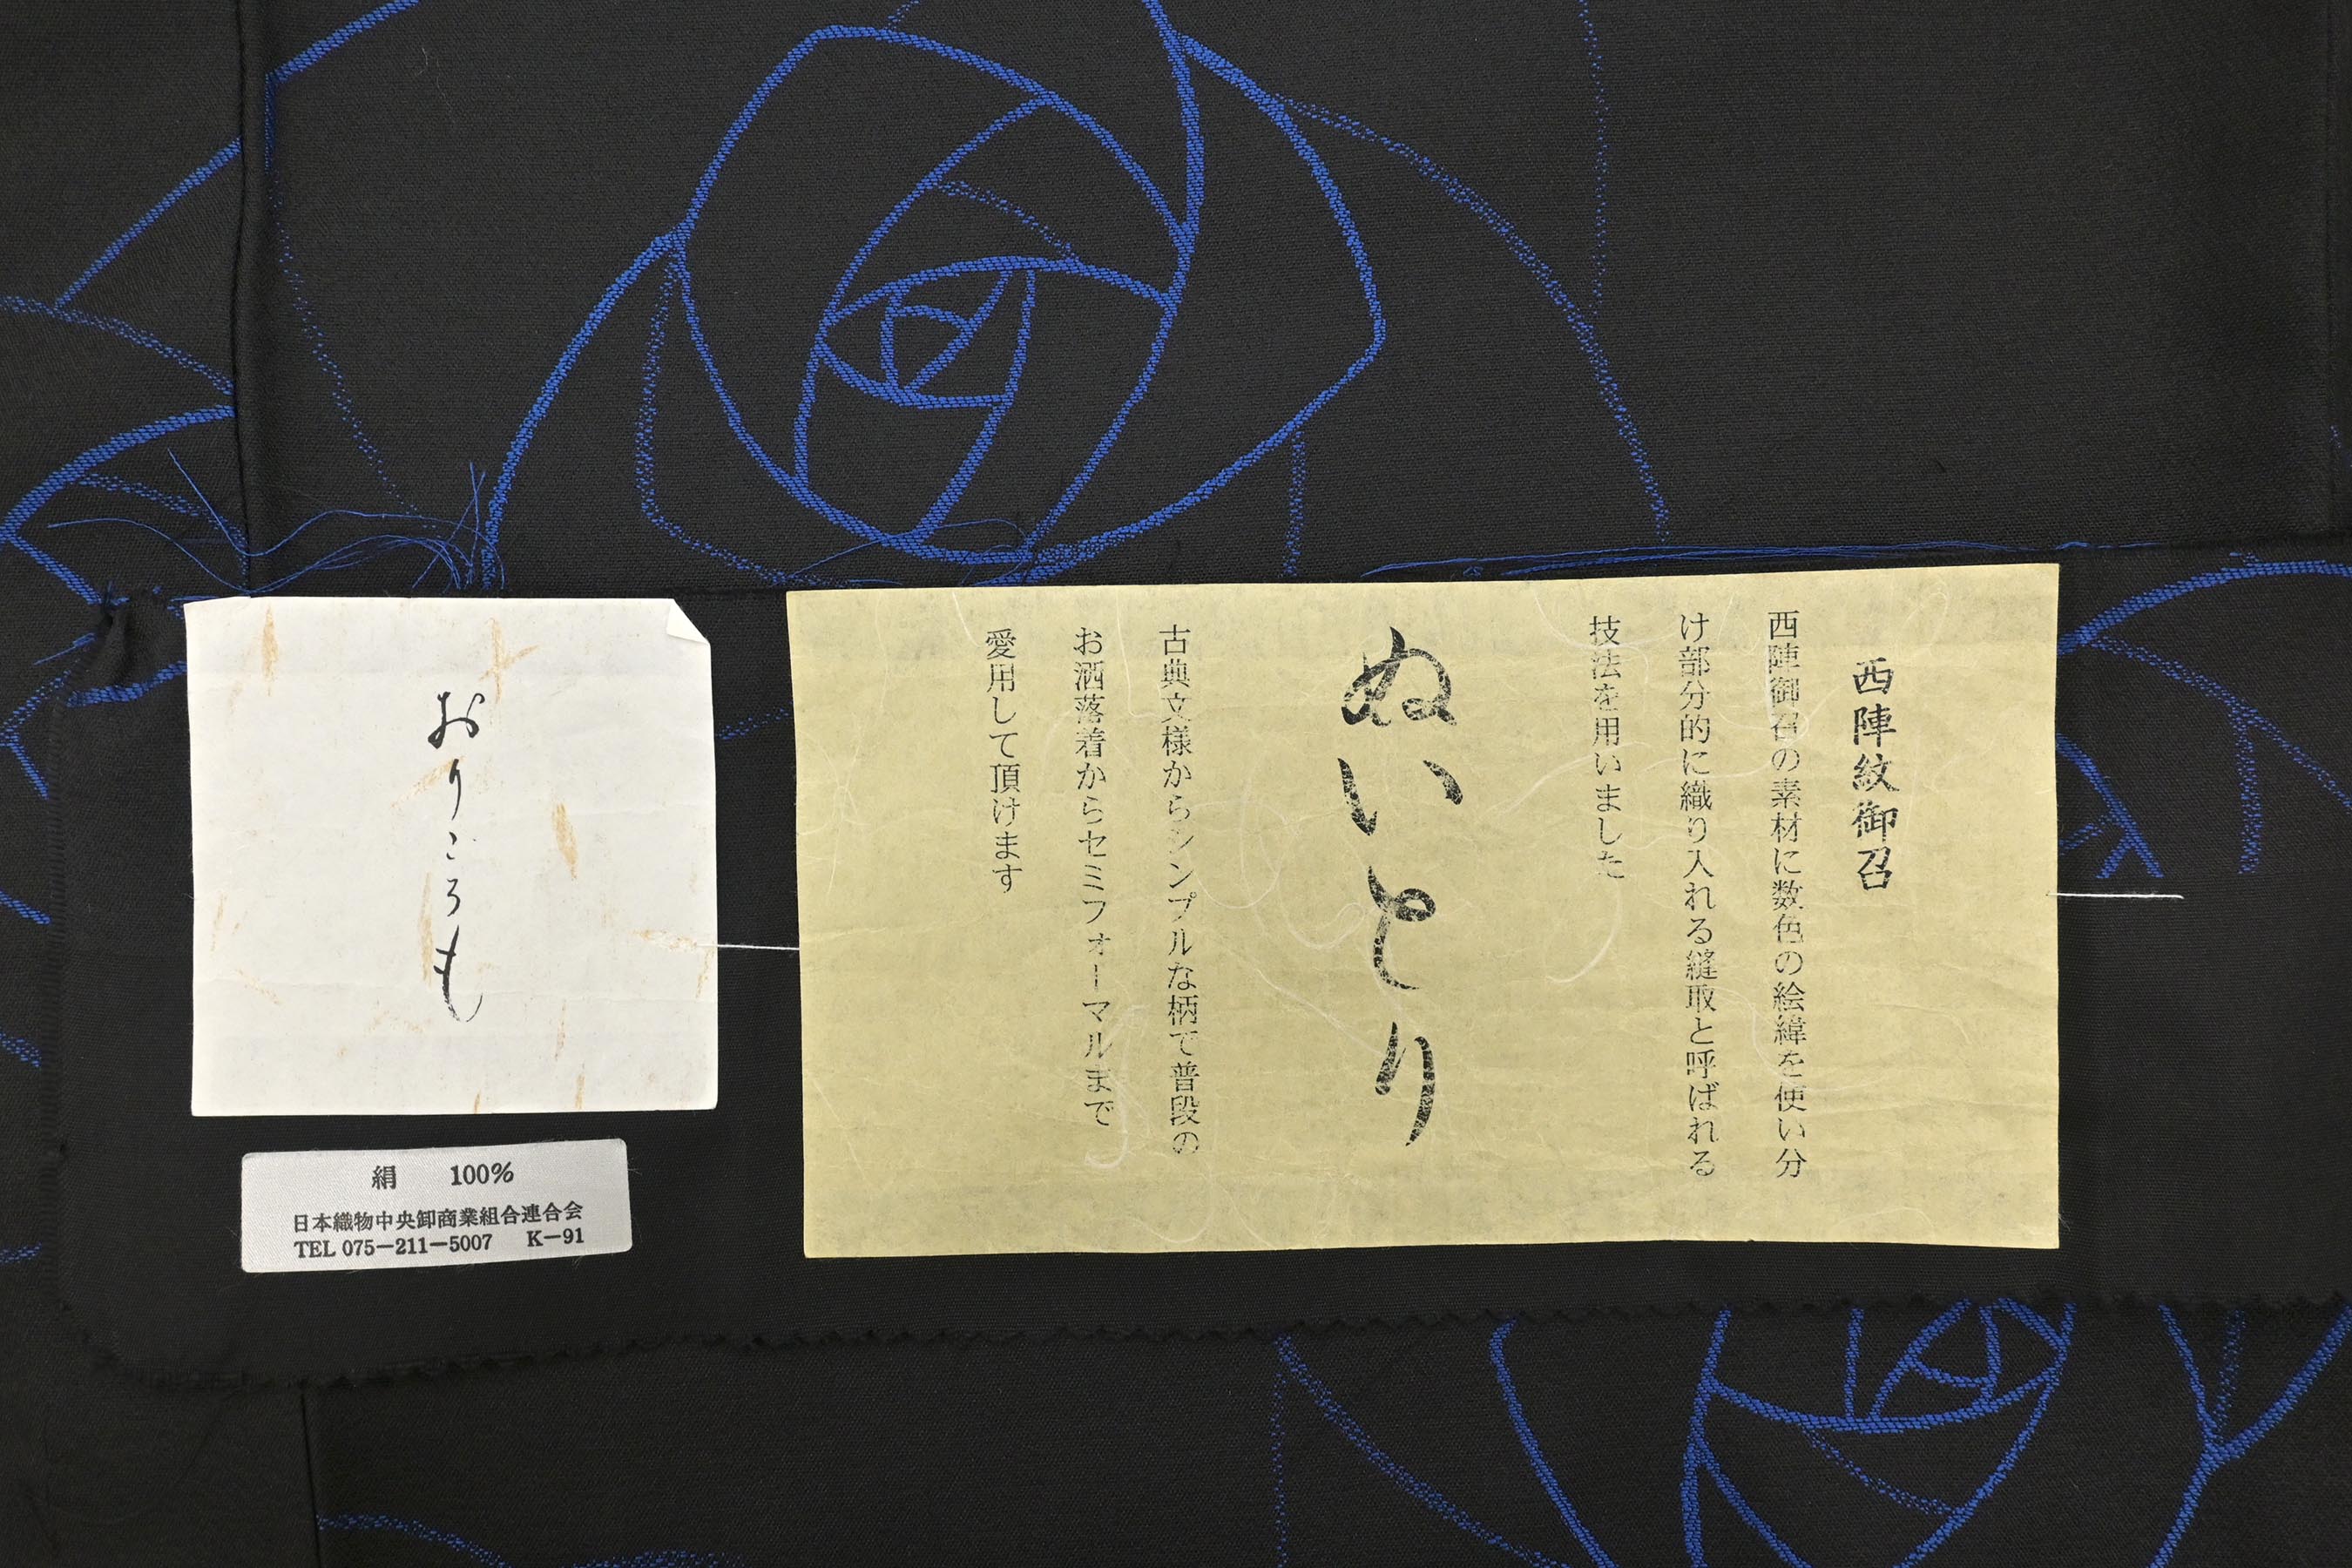 西陣紋御召
西陣御召の素材に数色の絵緯を使い分
け部分的に織り入れる縫取と呼ばれる
技法を用いました
ぬいとり
古典文様からシンプルな柄で普段の
お洒落着からセミフォーマルまで
愛用して頂けます
おりころも
絹 100%
日本織物中央卸商業組合連合会
TEL 075-211-5007 K-91